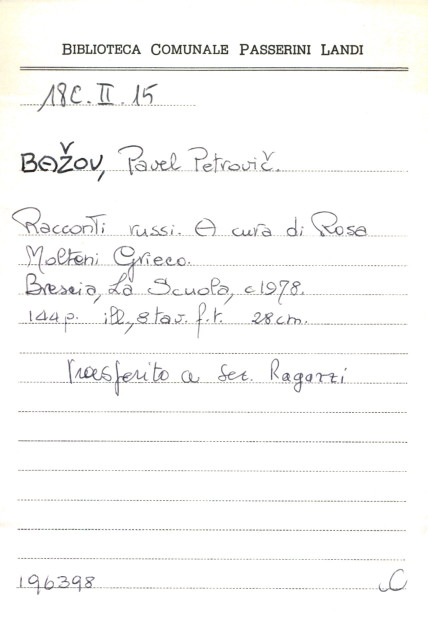 BIBLIOTECA COMUNALE PASSERINI LANDI
18C. II. 15
BAŽOV, Pavel Petrovič.
Racconti russi. A cura di Rosa
Molteni Grieco.
Brescia, La Scuola, c1978.
144p. ill., 8 tav. f.t. 28cm.
Trasferito a Sez. Ragazzi
196398 C